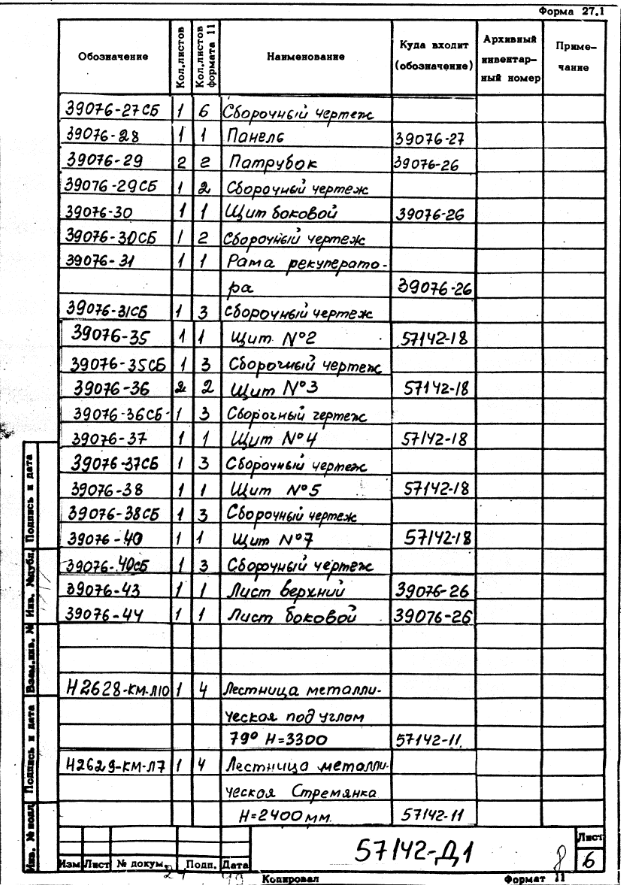 Форма 27.1
Обозначение Кол.листов Кол.листов формата 11 Наименование Куда входит (обозначение) Архивный инвентар-ный номер Приме-чание
39076-27СБ 1 6 Сборочный чертеж
39076-28 1 1 Панель 39076-27
39076-29 2 2 Патрубок 39076-26
39076-29СБ 1 2 Сборочный чертеж
39076-30 1 1 Щит боковой 39076-26
39076-30СБ 1 2 Сборочный чертеж
39076-31 1 1 Рама рекуперато-
ра 39076-26
39076-31СБ 1 3 Сборочный чертеж
39076-35 1 1 Щит №2 57142-18
39076-35СБ 1 3 Сборочный чертеж
39076-36 2 2 Щит №3 57142-18
39076-36СБ 1 3 Сборочный чертеж
39076-37 1 1 Щит №4 57142-18
39076-37СБ 1 3 Сборочный чертеж
39076-38 1 1 Щит №5 57142-18
39076-38СБ 1 3 Сборочный чертеж
39076-40 1 1 Щит №7 57142-18
39076-40СБ 1 3 Сборочный чертеж
39076-43 1 1 Лист верхний 39076-26
39076-44 1 1 Лист боковой 39076-26
Н2628-КМ-Л10 1 4 Лестница металли-
ческая под углом
79° Н=3300 57142-11
Н2629-КМ-Л7 1 4 Лестница металли-
ческая Стремянка
Н=2400мм. 57142-11
Подпись и дата
Инв. №дубл.
Взам.инв. №
Подпись и дата
Инв. №подл
Изм Лист № докум. Подп. Дата
57142-Д1
Лист
8 6
Копировал Формат 11